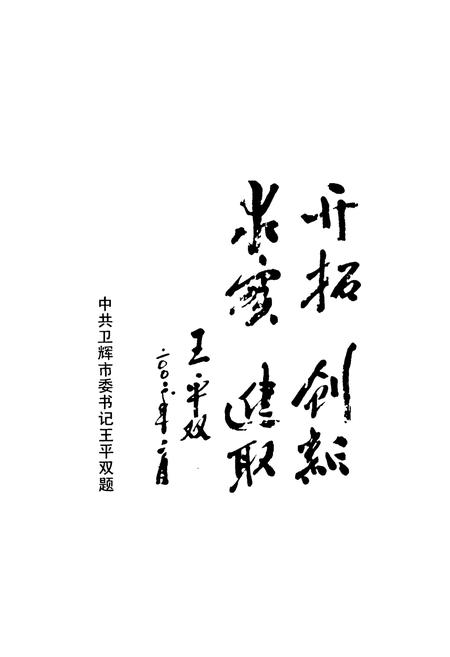 开拓 创新
求實 進取
王平双
二〇〇六年二月
中共卫辉市委书记王平双题